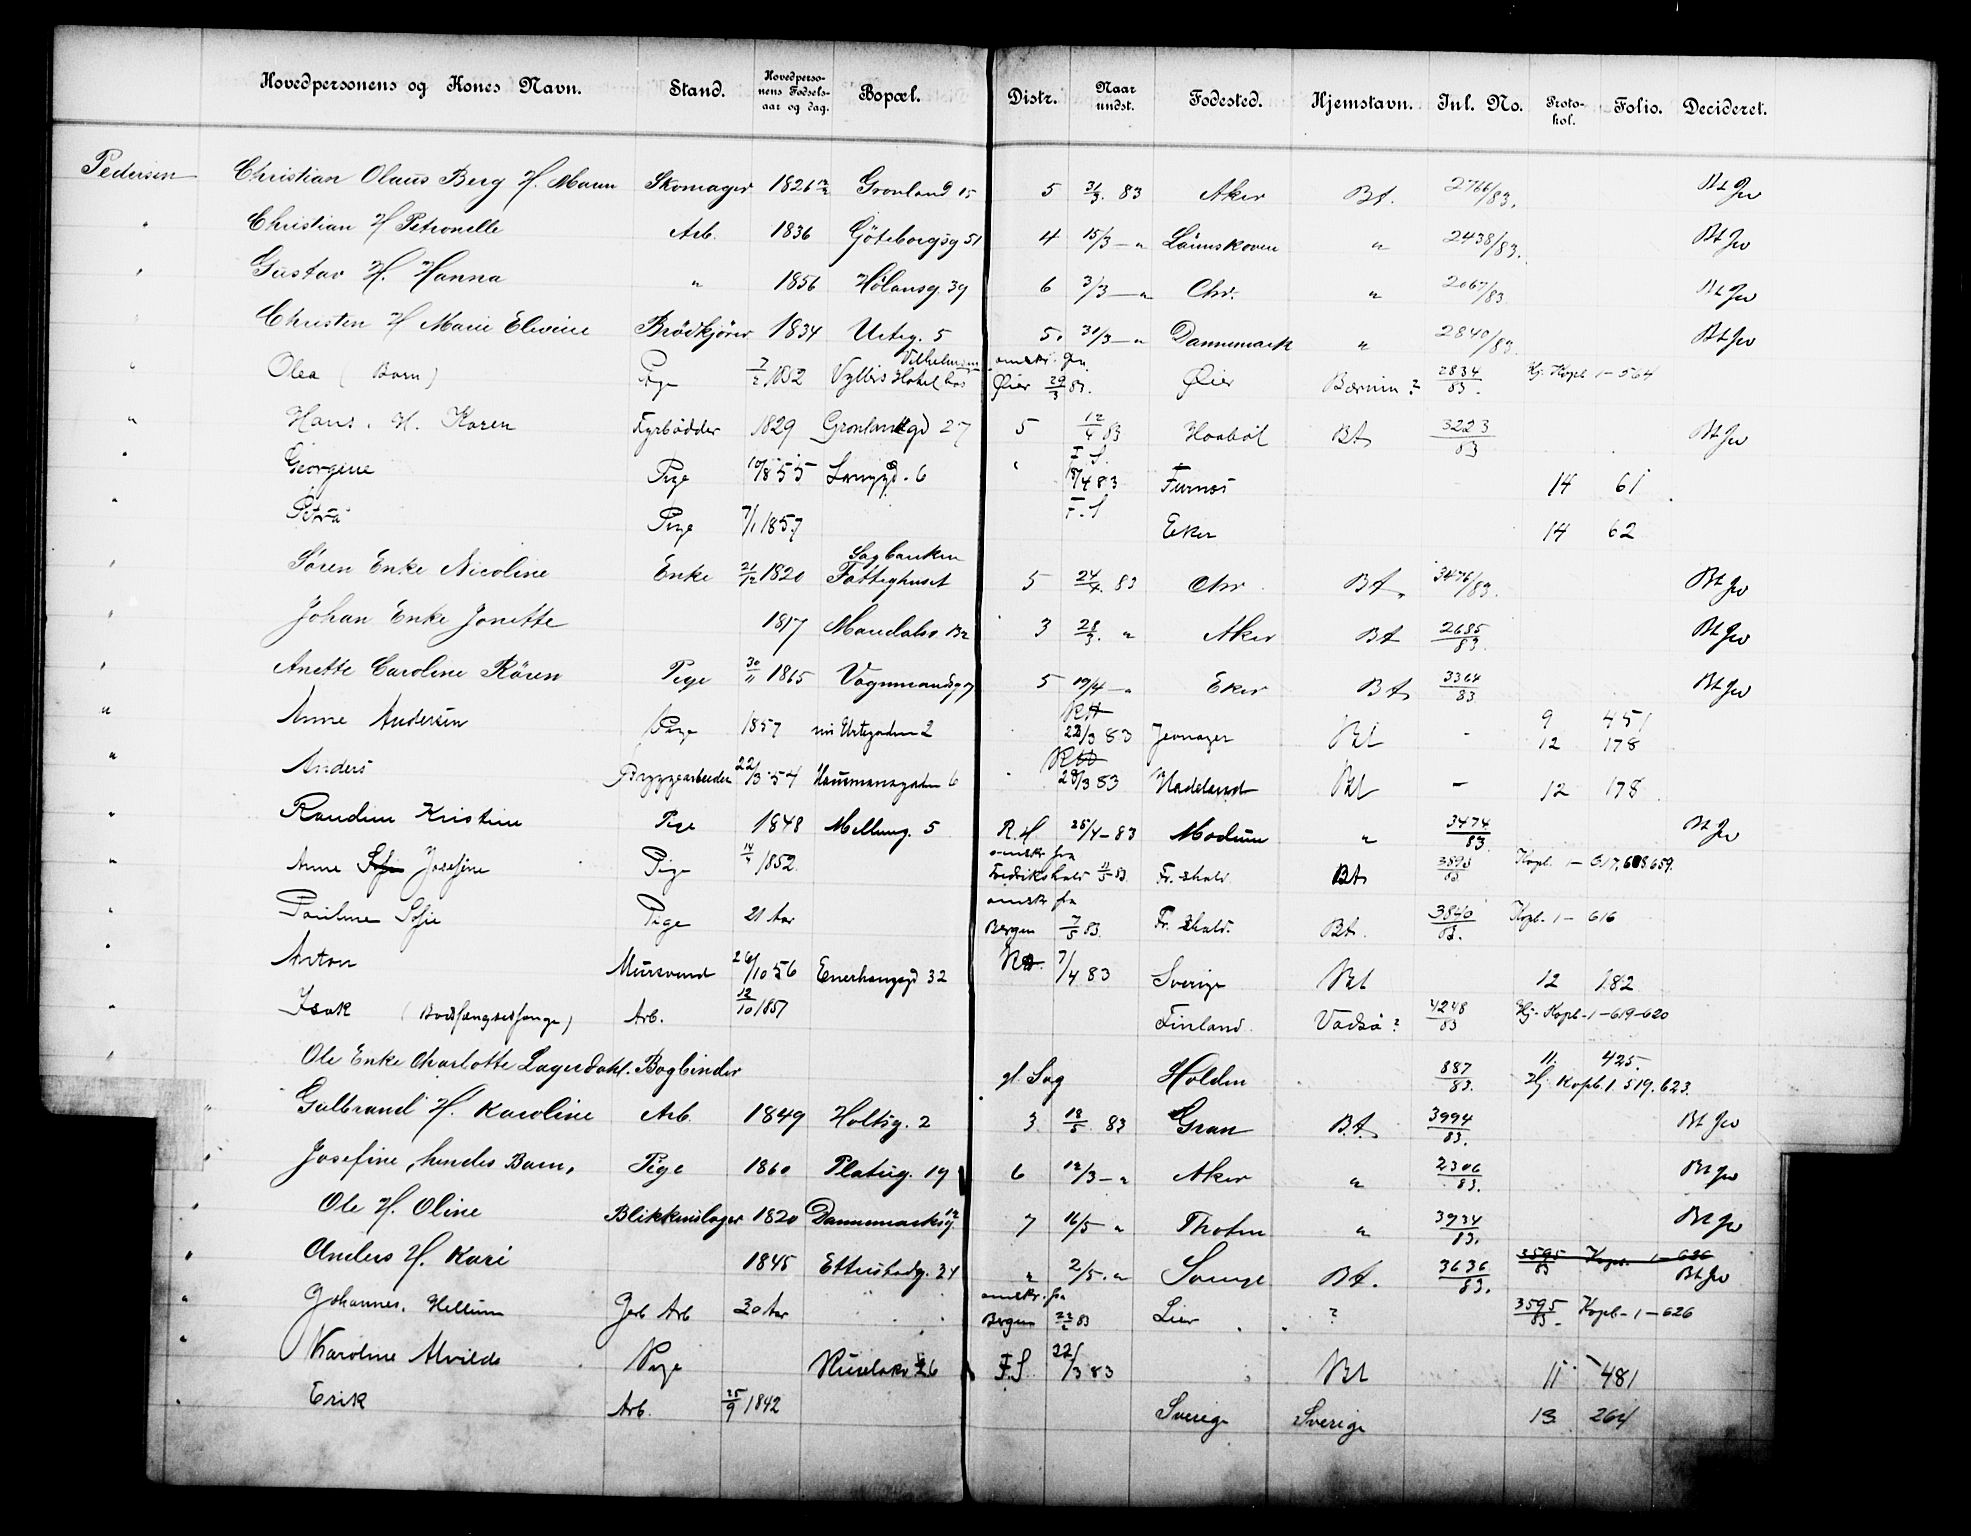 Hovedpersonens og Kones Navn. Stand. Hovedperso-nens Fødsels-aar og dag. Bopæl. Distr. Naar undst. Fødested. Hjemstavn. Inl. No. Proto-kol. Folio. Decideret.
Pedersen Christian Olaus Berg H. Maren Skomager 1826 Grønland 15 5 31/3 83 Aker Bt. 2766/83. Bt Jw
" Christian H Petronelle Arb. 1836 Göteborgsg 51 4 15/3 - " Lämskoven " 2438/83. Bt Jw
" Gustav H. Hanna " 1856 Hølansg. 39 6 3/3 - " Chr. " 2067/83 Bt Jw
" Christen H Marie Elevine Brødkjører 1834 Urteg. 5 5. 31/3 - " Dannemark " 2840/83. Bt Jw
" Olea (Barn) Pige 7/2 1832 Hotel hos omskr. fra Øier 29/3 83. Øier Bærum? 2834/83. Hj. Kopb 1 - 564
" Hans. H. Karen Fyrbødder 1829 Grønlandgd 27 5 12/4 83 Hoabøl Bt 3223/83 Bt Jw
" Georgine Pige 10/8 55 6 " F.S. 17/4 83 Furnes 14 61
" Petra Pige 7/1 1857 F.S Eker 14 62
" Søren Enke Nicoline Enke 21/12 1820 Sagbanken Fattighuset 5 24/4. 83 Chr Bt. 3476/83. Bt Jw
" Johan Enke Jonette 1817 Maridalsv. 132 3 28/3. " Aker Bt 2685/83. Bt Jw
" Anette Caroline Røren Pige 30/11 1865 Vognmandsg 7 5 19/4 - " Eker Bt 3364/83 Bt Jw
" Anne Andersen Pige 1857 Urtegaden 2 22/3 83 Jevnager Bt - 9 451
12 178
" Anders Bryggearbeider 22/3 54 Hausmansgaden 6 28/3 83 Hadeland Bt - 12 178
" Randine Kristine Pige 1848 Mellumg. 5 R.H 25/4 - 83 Modum " 3474/83 Bt Jw
" Anne Josefine Pige 14/4 1852. omskr fra Fredrikshald 11/5 83. Fr.shald Bt 3898/83 Kopb. 1 - 617, 658 659.
" Pauline Sofie Pige 21 Aar omskr fra Bergen 7/5 83. Fr.shald. Bt. 3840/83. Kopb. 1 - 616
" Anton Mursvend 26/10 56 Enerhaugsgd 32 7/4 83 Sverige Bt 12 182
" Isak (Bodsfængselsfange) Arb. 12/10 1857 Finland. Vadsø? 4248/83 Hj. Kopb - 1 - 619-620
" Ole Enke Charlotte Lagerdahl. Bogbinder gl. Sag Holden 887/83. 11. 425.
Hj. Kopb. 1. 519. 623.
" Gulbrand H. Karoline Arb. 1849 Holtsg. 2 3. 18/5. 83 Gran Bt. 3994/83. Bt Jw
" Josefine, hendes Barn, Pige 1860 Platug. 19 6 12/3 - " Aker " 2306/83. Bt Jw
" Ole H. Oline Blikkenslager 1820 Dannemarksg. 12 7 16/5 " Thoten " 3934/83. Bt Jw
" Anders H. Kari 1845 Etterstadg. 24 " 2/5. " Bt. 3636/83. 3595/83 Kopb. 1 - 626 Bt Jw
" Johannes. Hellum Garb Arb 30 Aar omskr. fra Bergen 22/2 83 Lier ? 3595/83 Kopb - 1 - 626
" Karoline Alvilde Pige 26 F.S. 22/3 83 Bt 11 - 481
" Erik Arb. 25/9 1842 Sverige Sverige 13 264